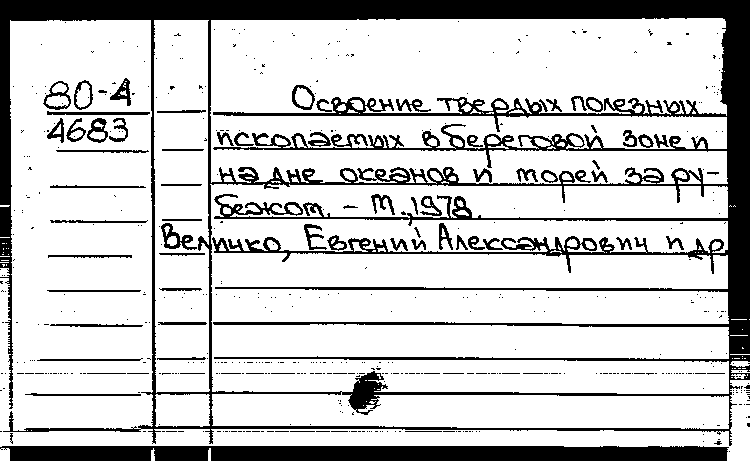 80-4
4683
Освоение твердых полезных
ископаемых в береговой зоне и
на дне океанов и морей за ру-
бежом. - М., 1978.
Величко, Евгений Александрович и др